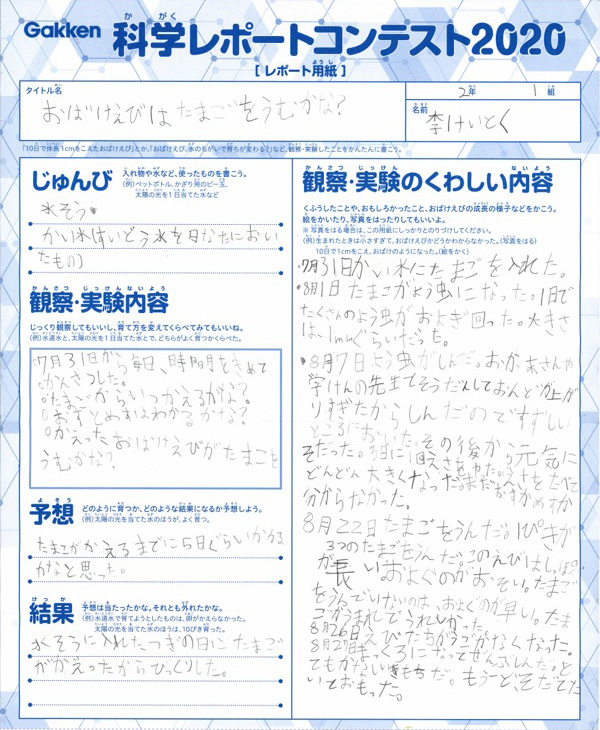 Gakken 科学レポートコンテスト2020
[レポート用紙]
タイトル名
おばけえびはたまごをうむかな?
2年 1組
名前
李けいとく
「10日で体長1cmをこえたおばけえび」とか、「おばけえび、水のちがいで育ちが変わる?」など、観察・実験したことをかんたんに書こう。
じゅんび
入れ物や水など、使ったものを書こう。
(例)ペットボトル、かざり用のビー玉、
太陽の光を1日当てた水など
水そう
かい水(すいどう水を日なたにおい
たもの)
観察・実験内容
じっくり観察してもいいし、育て方を変えてくらべてみてもいいね。
(例)水道水と、太陽の光を1日当てた水とで、どちらがよく育つかくらべた。
7月31日から毎日、時間をきめて
かんさつした。
○たまごからいつかえるかな?
○おすとめすはわかるかな?
○かえったおばけえびがたまごを
うむかな?
予想
どのように育つか、どのような結果になるか予想しよう。
(例)太陽の光を当てた水のほうが、よく育つ。
たまごがかえるまでに5日ぐらいかかる
かなと思った。
結果
予想は当たったかな。それとも外れたかな。
(例)水道水で育てようとしたものは、卵がかえらなかった。
太陽の光を当てた水のほうは、10ぴき育った。
水そうに入れたつぎの日にたまご
がかえったからびっくりした。
観察・実験のくわしい内容
くふうしたことや、おもしろかったこと、おばけえびの成長の様子などをかこう。
絵をかいたり、写真をはったりしてもいいよ。
※写真をはる場合は、この用紙にしっかりとのりづけしてください。
(例)生まれたときは小さすぎて、おばけえびかどうかわからなかった。(写真をはる)
10日で1cmをこえ、おばけになった。(絵をかく)
・7月31日かい水にたまごを入れた。
・8月1日たまごがよう虫になった。1日で
たくさんのよう虫がおよぎ回った。大きさ
は1mmくらいだった。
・8月7日よう虫がしんだ。おかあさんや
学けんの先生にそうだんしておんどが上が
りすぎたからしんだのですずしい
ところにおいた。その後から元気に
そだった。3日に1回えさをあげた。
どんどん大きくなった。まだ おすかめすか
分からなかった。
8月22日たまごをうんだ。1ぴきが
3つのたまごをうんだ。このえびはしっぽ
が長い。およぐのがおそい。たまご
をうんでいないのは、およぐのが早い。たま
ごがうまれしてうれしかった。
8月26日えびたちがうごかなくなった。
8月27日まっくろになってぜんぶしんだ。と
てもかなしいきもちだ。もう一どそだてた
いとおもった。